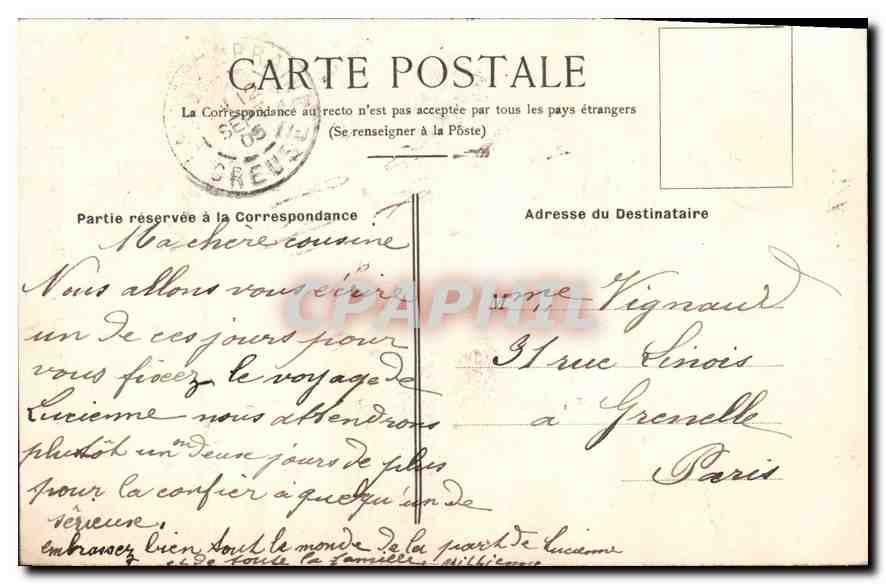 CARTE POSTALE
La Correspondance au recto n'est pas acceptée par tous les pays étrangers
(Se renseigner à la Poste)
CREUSE
Partie réservée à la Correspondance
Ma chère cousine
Nous allons vous écrire
un de ces jours pour
vous fixez le voyage de
Lucienne nous attendrons
plutôt un ou deux jours de plus
pour la confier à quelqu'un de
sérieuse.
embrassez bien tout le monde de la part de Lucienne
et de toute la famille
Adresse du Destinataire
Mme Vignaud
31 rue Linois
à Grenelle
Paris
CPAPHIL